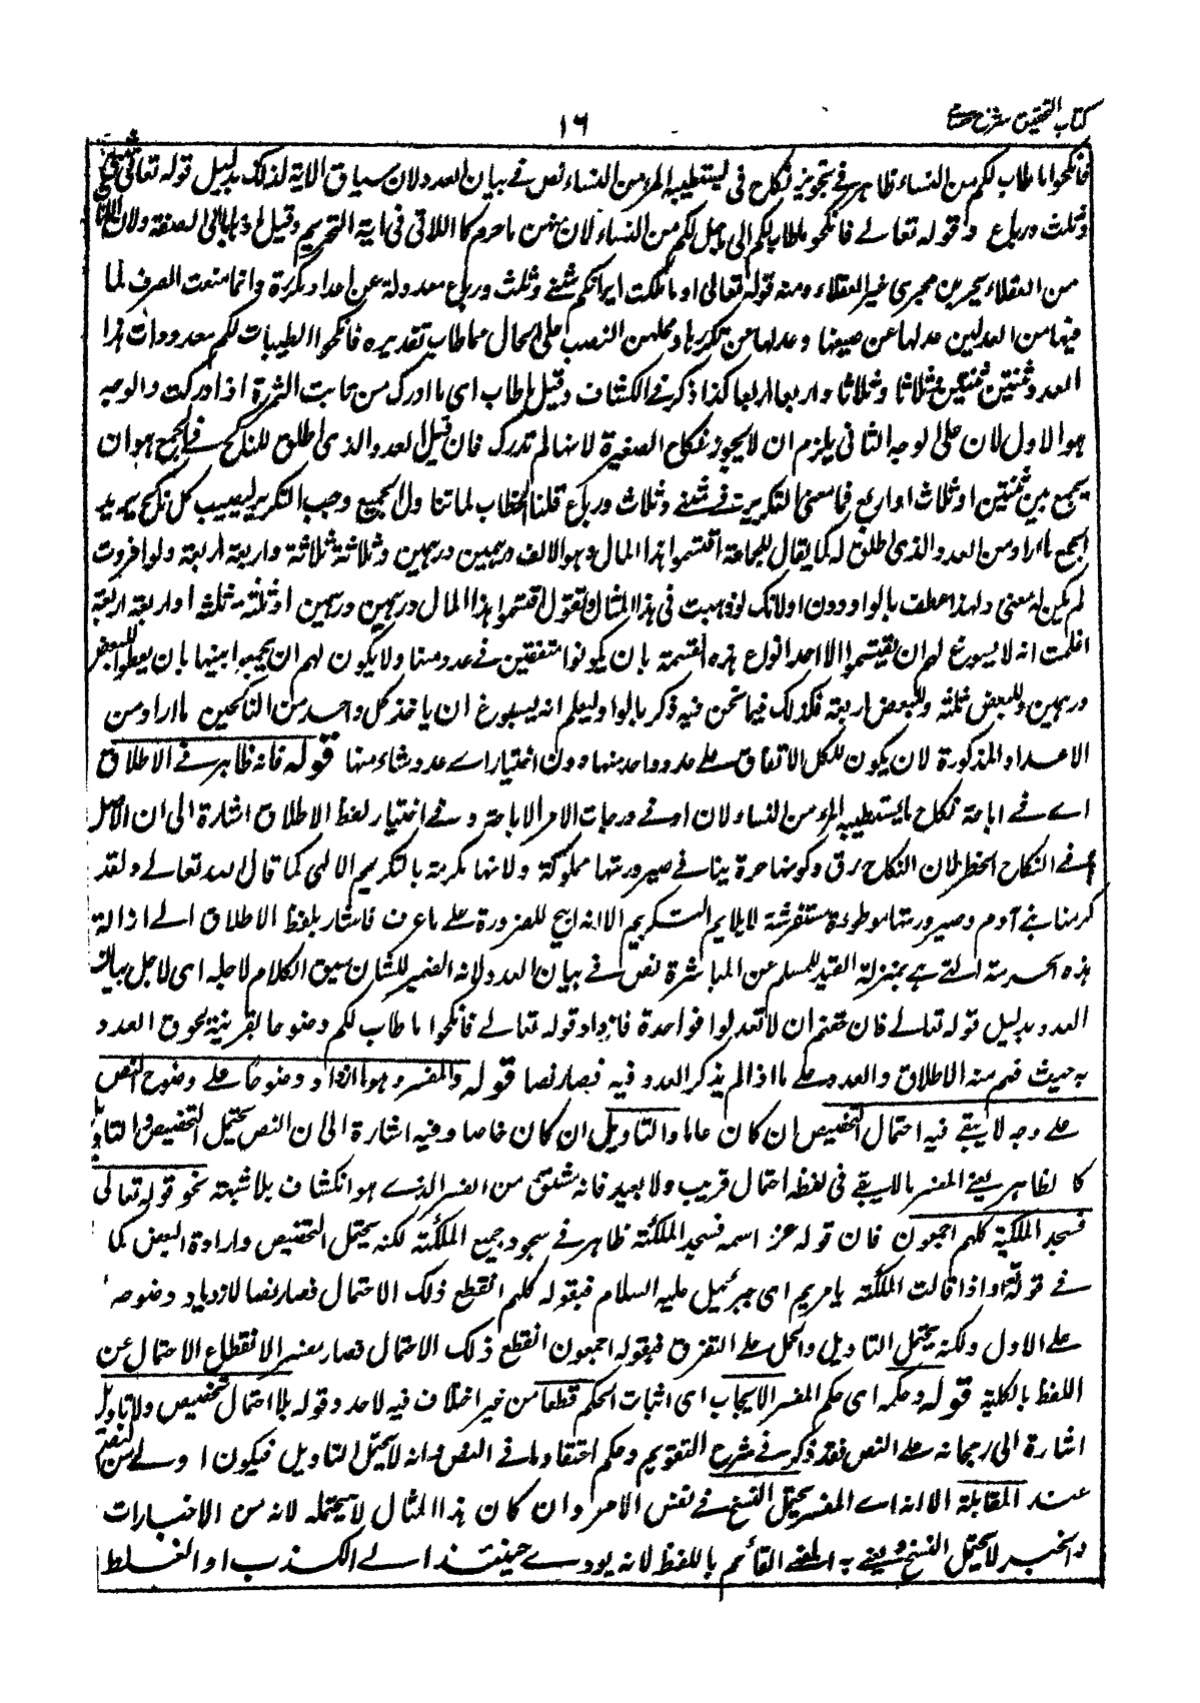 كتاب التحقيق شرح حسامي
١٦
فانكحوا ما طاب لكم من النساء ظاهر في تجويز نكاح ما يستطيبه المرء من النساء نص في بيان العدد لان سياق الاية لذلك بدليل قوله تعالى مثنى
وثلث ورباع وقوله تعالے فانكحوا ما طاب لكم اى ما حل لكم من النساء لان منهن ما حرم كا اللاتي في اية التحريم وقيل ما ذهابا الى الصفة ولان الاناث
من العقلاء يجرين مجرى غير العقلاء ومنه قوله تعالى او ما ملكت ايمانكم مثنے وثلث ورباع معدولة عن اعداد مكررة وانما منعت الصرف لما
فيها من العدلين عدلها عن صيغها وعدلها عن تكررها ومحلهن النصب على الحال مما طاب تقديره فانكحوا الطيبات لكم معدودات هذا
العدد ثنتين ثنتين وثلاثا وثلاثا واربعا اربعا كذا ذكر في الكشاف وقيل ما طاب اى ما ادرك من طابت الثمرة اذا ادركت والوجه
هو الاول لان على الوجه الثاني يلزم ان لا يجوز نكاح الصغيرة لانها لم تدرك فان قيل العدد الذى اطلق للناكح في الجمع هو ان
يجمع بين ثنتين او ثلاث او اربع فما معنى التكرير في مثنے وثلاث ورباع قلنا الخطاب لما تناول الجميع وجب التكرير ليصيب كل ناكح يريد
الجمع ما اراد من العدد الذى اطلق له كما يقال للجماعة اقتسموا هذا المال وهو الالف درهمين درهمين وثلاثة ثلاثة واربعة اربعة ولو افردت
لم يكن له معنى ولهذا عطف بالواو دون او لانك لو ذهبت في هذا المثال وتقول اقتسموا هذا المال درهمين درهمين او ثلثة ثلثة او اربعة اربعة
اعلمت انه لا يسوغ لهم ان يقتسموا الا احد انواع هذه القسمة بان يكونوا متفقين في عدد منها ولا يكون لهم ان يجمعوا بينها بان يعطوا البعض
درهمين وللبعض ثلثة وللبعض اربعة فكذلك فيما نحن فيه ذكر بالواو ليعلم انه يسوغ ان ياخذ كل واحد من الناكحين ما اراد من
الاعداد المذكورة لان يكون للكل الاتفاق على عدد واحد منها دون اختيار اے عدد شاء منها قوله فانه ظاهر في الاطلاق
اے في اباحة نكاح ما يستطيبه المرء من النساء لان ادنے درجات الامر الاباحة وفے اختيار لفظ الاطلاق اشارة الى ان الاصل
فے النكاح الحظر لان النكاح رق وكونها حرة ينافے صيرورتها مملوكة ولانها مكرمة بالتكريم الالهى كما قال الله تعالے ولقد
كرمنا بنے آدم وصيرورتها موطوءة مستفرشة لا يلايم التكريم الا انه ابيح للضرورة على ما عرف فاشار بلفظ الاطلاق الے ازالة
هذه الحرمة التے هے بمنزلة القيد للمسلم عن المباشرة نص فے بيان العدد لانه الضمير للشان سيق الكلام لاجله اى لاجل بيان
العدد بدليل قوله تعالے فان خفتم ان لا تعدلوا فواحدة فازداد قوله تعالے فانكحوا ما طاب لكم وضوحا بقرينة لحوق العدد
به حيث فهم منه الاطلاق والعدد على ما اذا لم يذكر العدد فيه فصار نصا قوله والمفسر وهو ما ازداد وضوحا على وضوح النص
على وجه لا يبقے فيه احتمال التخصيص ان كان عاما والتاويل ان كان خاصا وفيه اشارة الى ان النص يحتمل التخصيص والتاويل
كا لظاهر يعنے المفسر ما لا يبقے في لفظه احتمال قريب ولا بعيد فانه مشتق من الفسر الذے هو انكشاف بلا شبهة نحو قوله تعالى
فسجد الملئكة كلهم اجمعون فان قوله عز اسمه فسجد الملئكة ظاهر في سجود جميع الملئكة لكنه يحتمل التخصيص وارادة البعض كما
فے قوله واذ قالت الملئكة يا مريم اى جبرئيل عليه السلام فبقوله كلهم انقطع ذلك الاحتمال فصار نصا لازدياد وضوحه
على الاول ولكنه يحتمل التاويل والحمل على التفرق فبقوله اجمعون انقطع ذلك الاحتمال فصار مفسرا لانقطاع الاحتمال عن
اللفظ بالكلية قوله وحكمه اى حكم المفسر الايجاب اى اثبات الحكم قطعا من غير اختلاف فيه لاحد وقوله بلا احتمال تخصيص ولا تاويل
اشارة الى رجحانه على النص فقد ذكر فے شرح التقويم وحكم اعتقاد ما في النص وانه لا يحتمل التاويل فيكون اولے من النص
عند المقابلة الا انه اے المفسر يحتمل النسخ في نفس الامر وان كان هذا المثال لا يحتمله لانه من الاخبارات
والخبر لا يحتمل النسخ ويعنے به المعنے القائم باللفظ لانه يودے حينئذ الے الكذب او الغلط